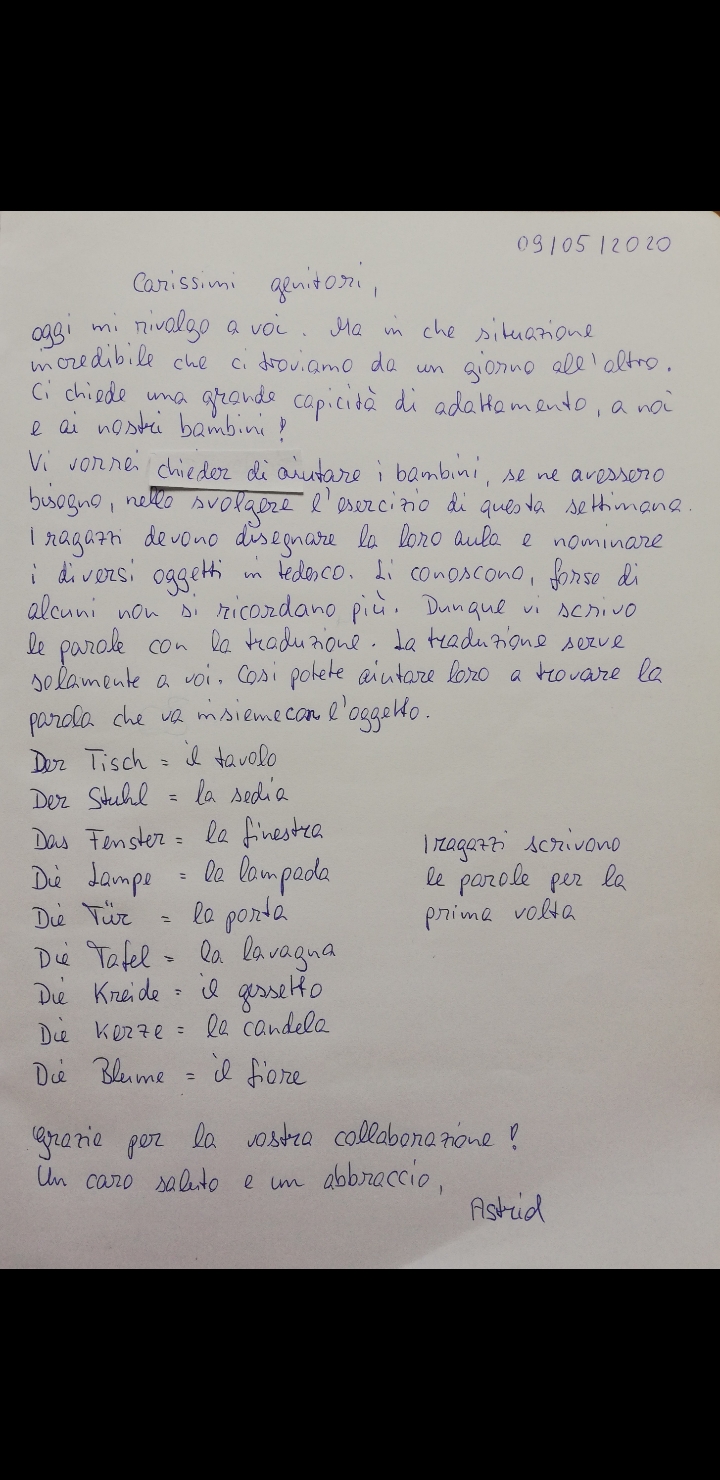 09/05/2020
Carissimi genitori,
oggi mi rivolgo a voi. Ma in che situazione
incredibile che ci troviamo da un giorno all'altro.
Ci chiede una grande capicità di adattamento, a noi
e ai nostri bambini!
Vi vorrei chieder di aiutare i bambini, se ne avessero
bisogno, nello svolgere l'esercizio di questa settimana.
I ragazzi devono disegnare la loro aula e nominare
i diversi oggetti in tedesco. Li conoscono, forse di
alcuni non si ricordano più. Dunque vi scrivo
le parole con la traduzione. La traduzione serve
solamente a voi. Così potete aiutare loro a trovare la
parola che va insieme con l'oggetto.
Der Tisch = il tavolo
Der Stuhl = la sedia
Das Fenster = la finestra
Die Lampe = la lampada
Die Tür = la porta
Die Tafel = la lavagna
Die Kreide = il gessetto
Die Kerze = la candela
Die Blume = il fiore
I ragazzi scrivono
le parole per la
prima volta
Grazie per la vostra collaborazione!
Un caro saluto e un abbraccio,
Astrid